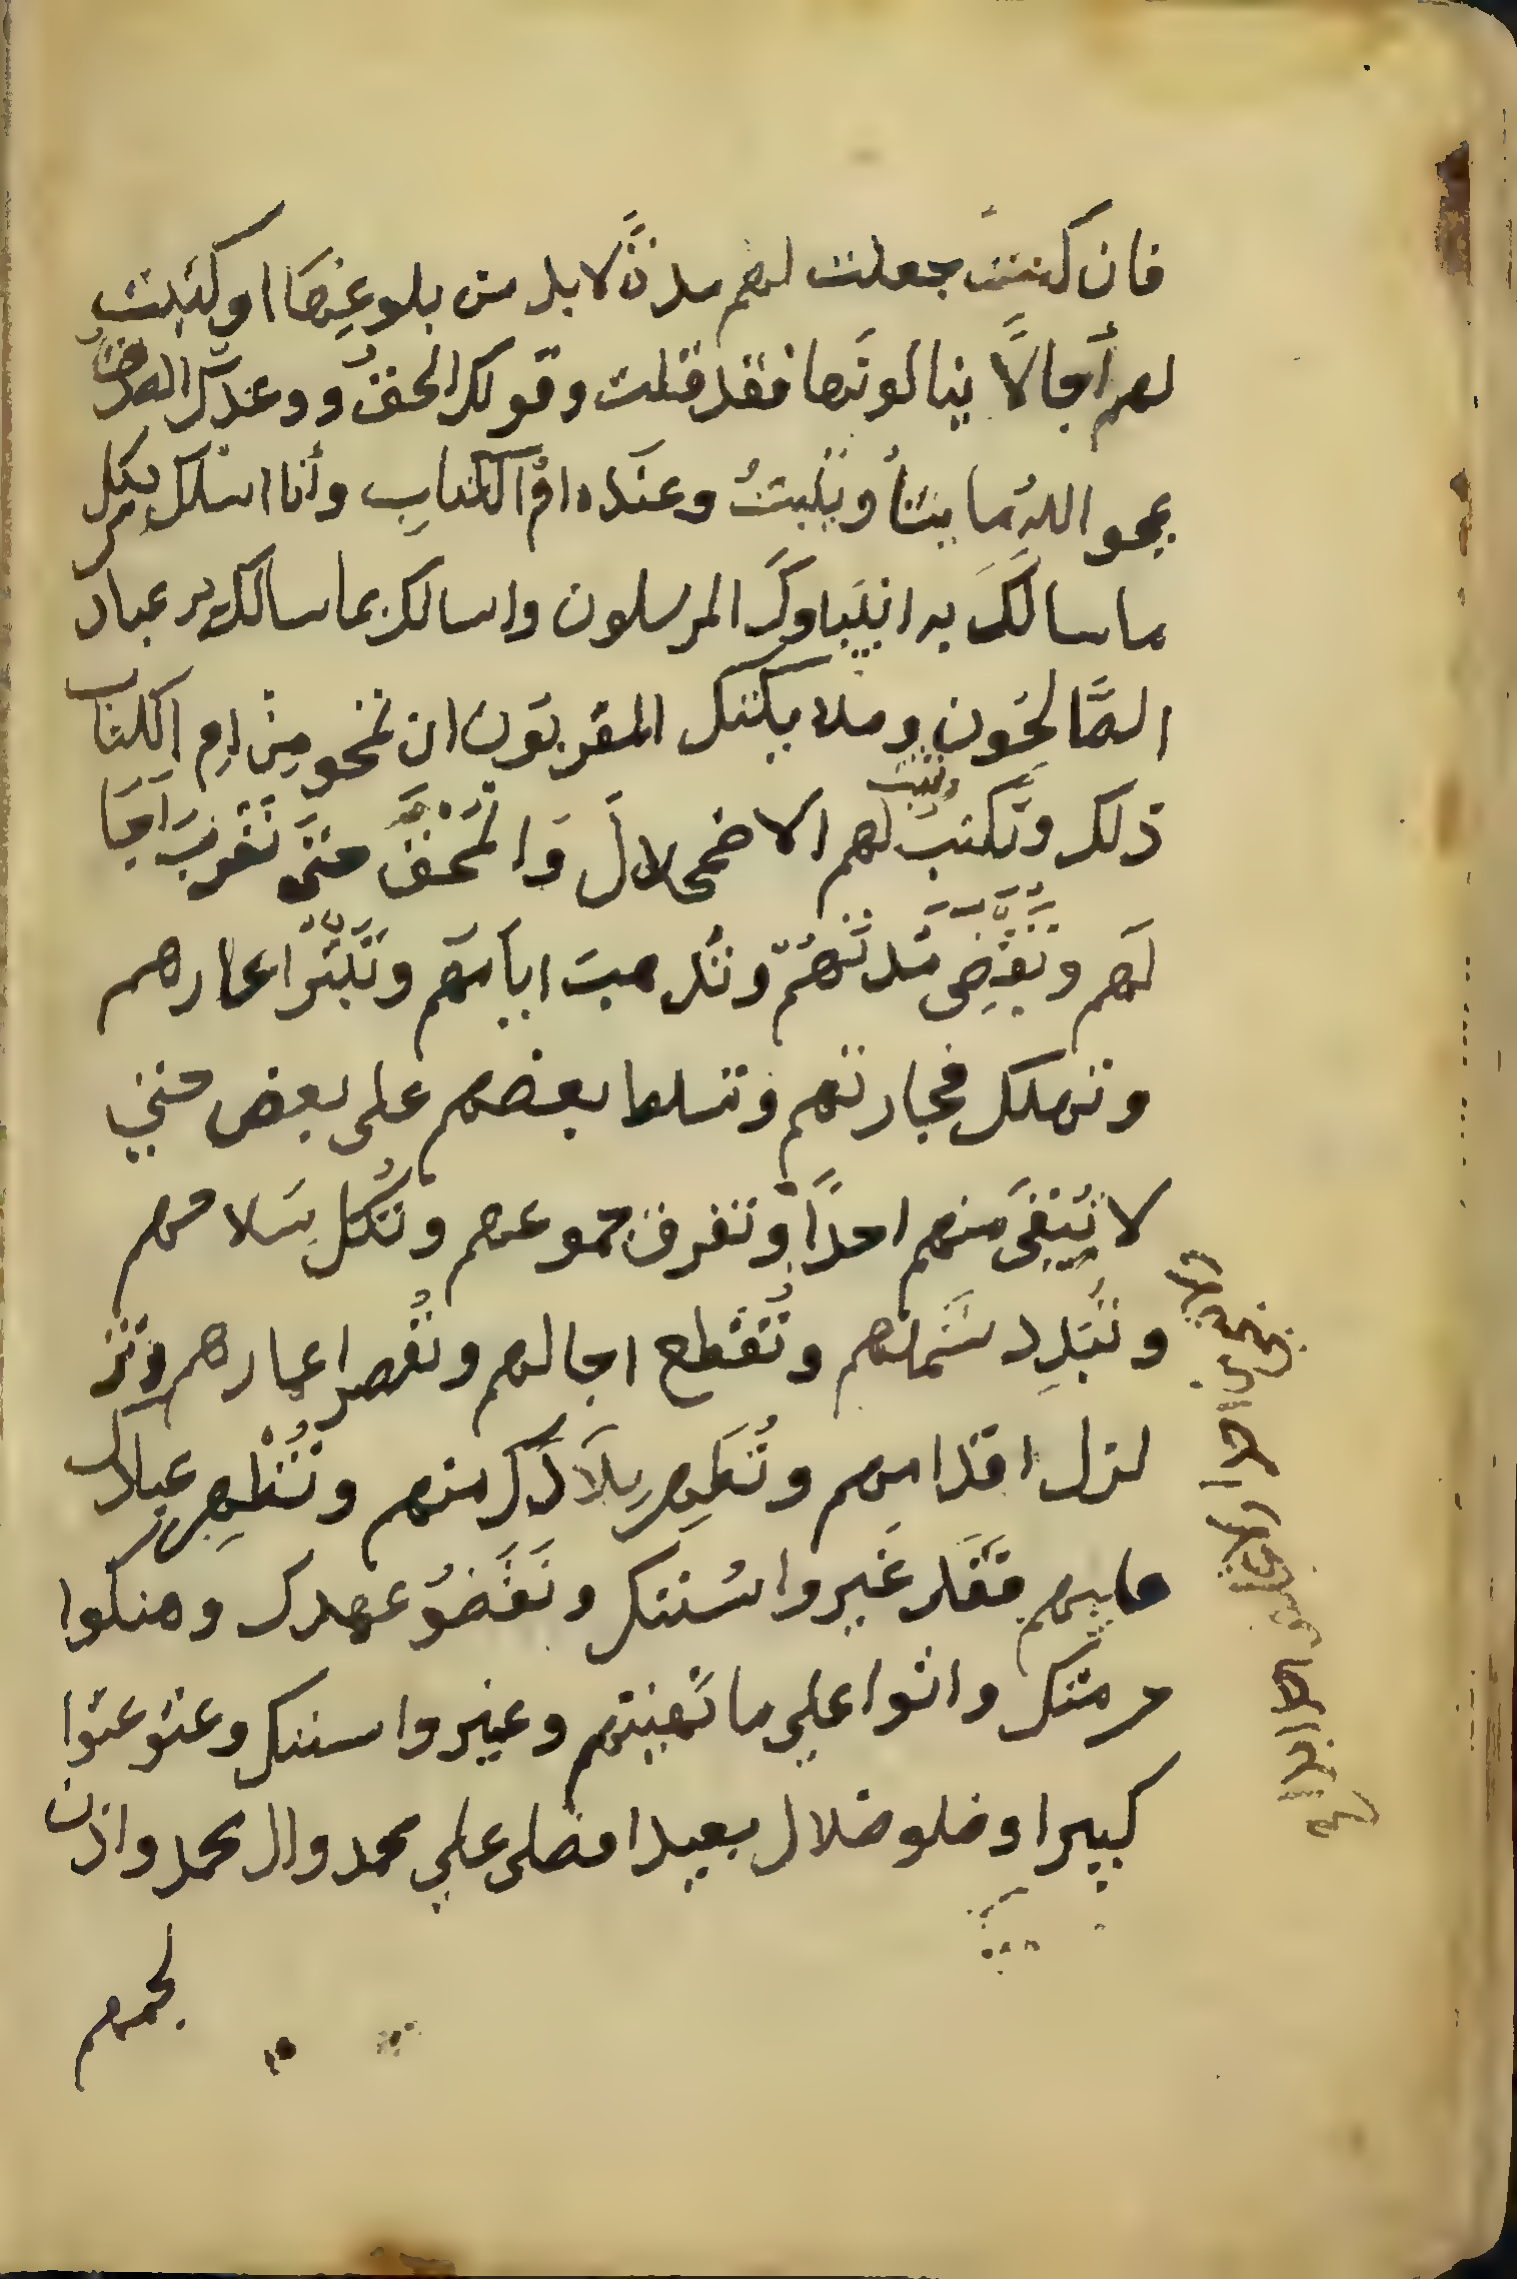 فان كنت جعلت لهم مدةً لابد من بلوغها او كتبت
لهم أجالاً ينالونها فقد قلت وقولك الحق ووعدك الصدق
يمحو الله ما يشأ ويثبت وعنده ام الكتاب وأنا اسلك بكل
ما سالك به انبياوك المرسلون واسالك بما سالك به عباد
الصالحون وملايكتك المقربون ان تمحو من ام الكتاب
ذلك وتكتب وتثبت لهم الاضمحلال والمحق حتى تقرب اجا
لهم وتقضى مدتهم وتذهب ايامهم وتبتر اعمارهم
وتهلك فجارتهم وتسلط بعضهم على بعض حتي
لا تبقى منهم احداً وتفرق جموعهم وتكل سلاحهم
وتبدد شملهم وتقطع اجالهم وتقصر اعمارهم وتز
لزل اقدامهم وتطهر بلادك منهم وتظهر عبادك
عليهم فقد غيروا سنتك ونقضو عهدك وهتكوا
حرمتك واتوا علي ما نهيتهم وغيروا سننك وعتو عتوا
كبيرا وضلو ضلال بعيدا فصلى علي محمد وال محمد واذن
لجمعهم